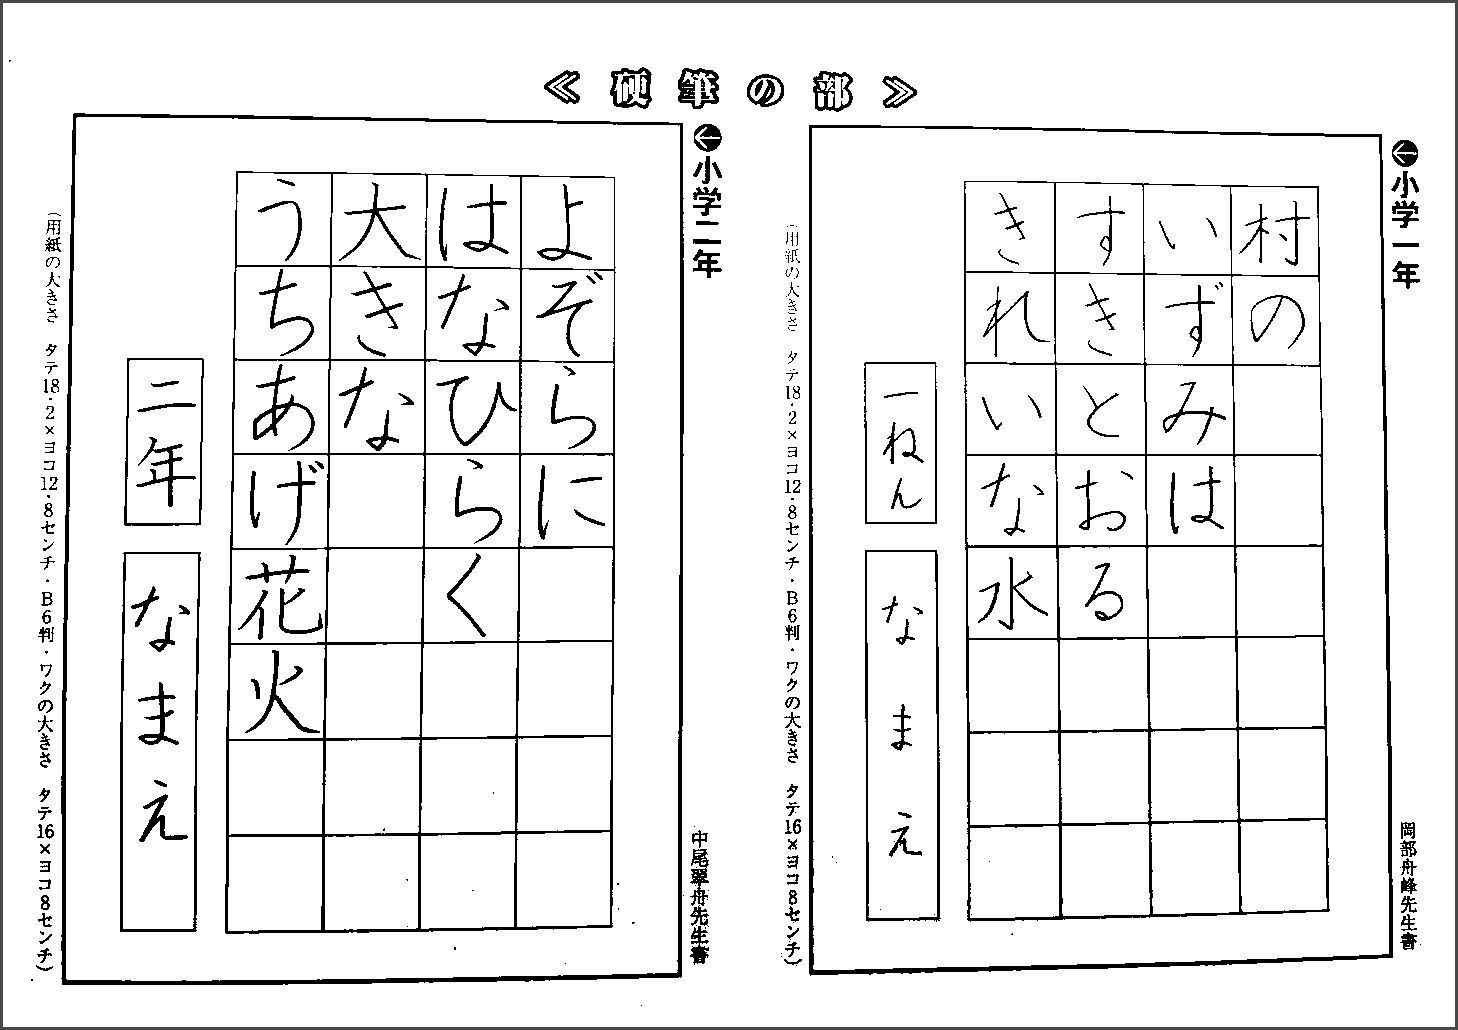 ≪硬筆の部≫
小学一年
村の
いずみは
すきとおる
きれいな水
一ねん
なまえ
岡部舟峰先生書
(用紙の大きさ タテ18・2×ヨコ12・8センチ・B6判・ワクの大きさ タテ16×ヨコ8センチ)
小学二年
よぞらに
はなひらく
大きな
うちあげ花火
二年
なまえ
中尾翠舟先生書
(用紙の大きさ タテ18・2×ヨコ12・8センチ・B6判・ワクの大きさ タテ16×ヨコ8センチ)